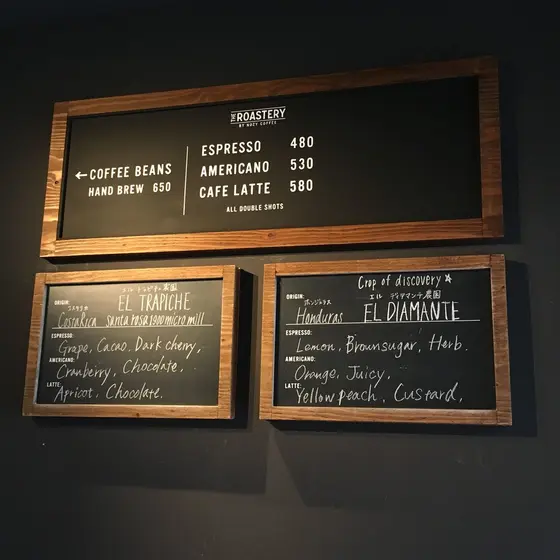 THE ROASTERY
BY NOZY COFFEE
←COFFEE BEANS
HAND BREW 650
ESPRESSO 480
AMERICANO 530
CAFE LATTE 580
ALL DOUBLE SHOTS
エル トラピチェ農園
ORIGIN: コスタリカ EL TRAPICHE
CostaRica Santa rosa 1900 micro mill
ESPRESSO:
Grape, Cacao, Dark cherry,
AMERICANO:
Cranberry, Chocolate,
LATTE:
Apricot, Chocolate.
Crop of discovery☆
エル ディアマンテ農園
ORIGIN: ホンジュラス
Honduras EL DIAMANTE
ESPRESSO:
Lemon, Brownsugar, Herb.
AMERICANO:
Orange, Juicy,
LATTE:
Yellow peach, Custard,